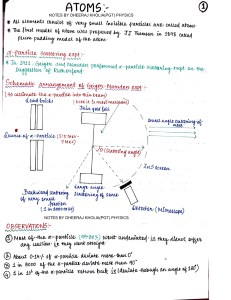 ATOMS:-
①
NOTES BY DHEERAJ KHOLIA(PGT) PHYSICS
All elements consist of very small invisible particles are called atoms
The first model of atom was proposed by JJ Thomson in 1898 called
plum pudding model of the atom.
α-Particle scattering expt:-
In 1911, Geiger and Marsden performed α-particle scattering expt on the
Suggestion of Rutherford
Schematic arrangement of Geiger-Marsden expt:-
(to collimate the α-particle into thin beam)
Lead bricks
Thin gold foil
Small angle scattering of
most
Source of α-particle
θ (Scattering angle)
ZnS screen
Backward scattering
of very small
fraction
Large angle
Scattering of some
Detector (Microscope)
NOTES BY DHEERAJ KHOLIA(PGT) PHYSICS
OBSERVATIONS:-
① Most of the α-particle went undeviated ie they
any collision ie they went straight
② About 0.14% of α-particle deviate more than 1°
③ 1 in 8000 of the α-particle deviate more than 90°
④ of the α-particle return back ie (deviate through an angle of 180°)